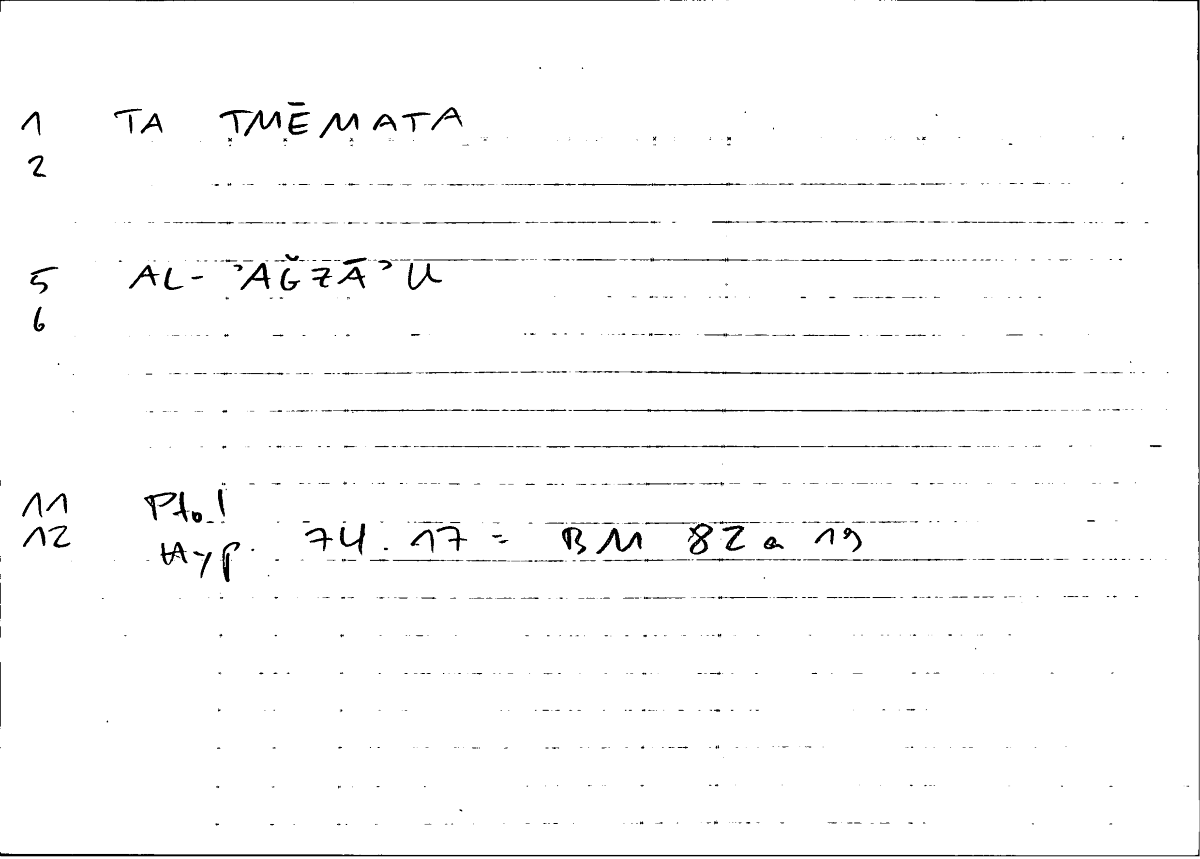 1 TA TMĒMATA
2
5 AL-ʾAǦZĀʾU
6
11 Ptol
12 Hyp. 74.17 = BM 82a 19